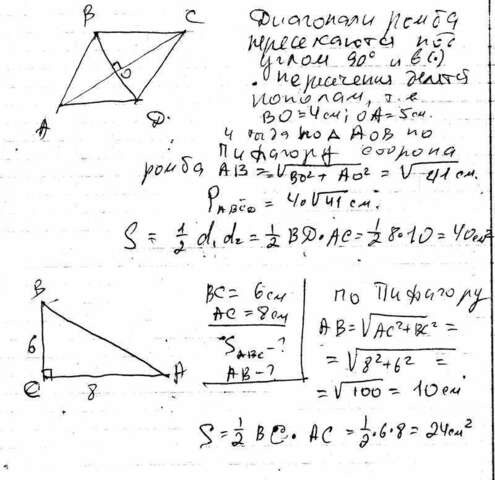 B C
Диагонали ромба
пересекаются под
углом 90° и в (•)
пересечения делятся
пополам, т.е
BO = 4 см; OA = 5 см.
O
A D
и тогда по Δ AOB по
Пифагору сторона
ромба AB = √BO² + AO² = √41 см.
P ABCD = 4·√41 см.
S = 1/2 d₁ d₂ = 1/2 BD·AC = 1/2 8·10 = 40 см²
B
6
C 8 A
BC = 6 см
AC = 8 см
S ABC - ?
AB - ?
по Пифагору
AB = √AC² + BC² =
= √8² + 6² =
= √100 = 10 см
S = 1/2 BC · AC = 1/2 · 6 · 8 = 24 см²